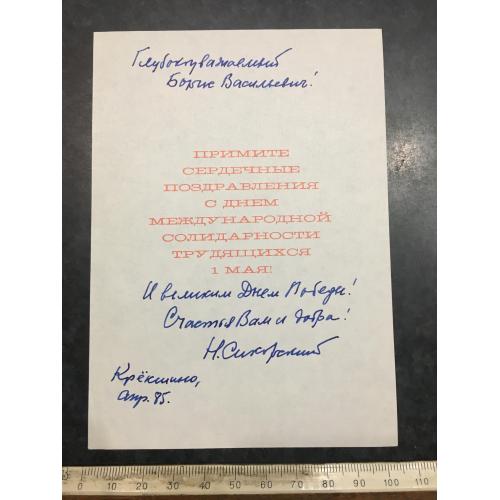 Глубокоуважаемый
Борис Васильевич!
ПРИМИТЕ
СЕРДЕЧНЫЕ
ПОЗДРАВЛЕНИЯ
С ДНЕМ
МЕЖДУНАРОДНОЙ
СОЛИДАРНОСТИ
ТРУДЯЩИХСЯ
1 МАЯ!
И великим Днем Победы!
Счастья Вам и добра!
Н. Сикорский
Крёкшино,
апр. 85.
0 10 20 30 40 50 60 70 80 90 100 110